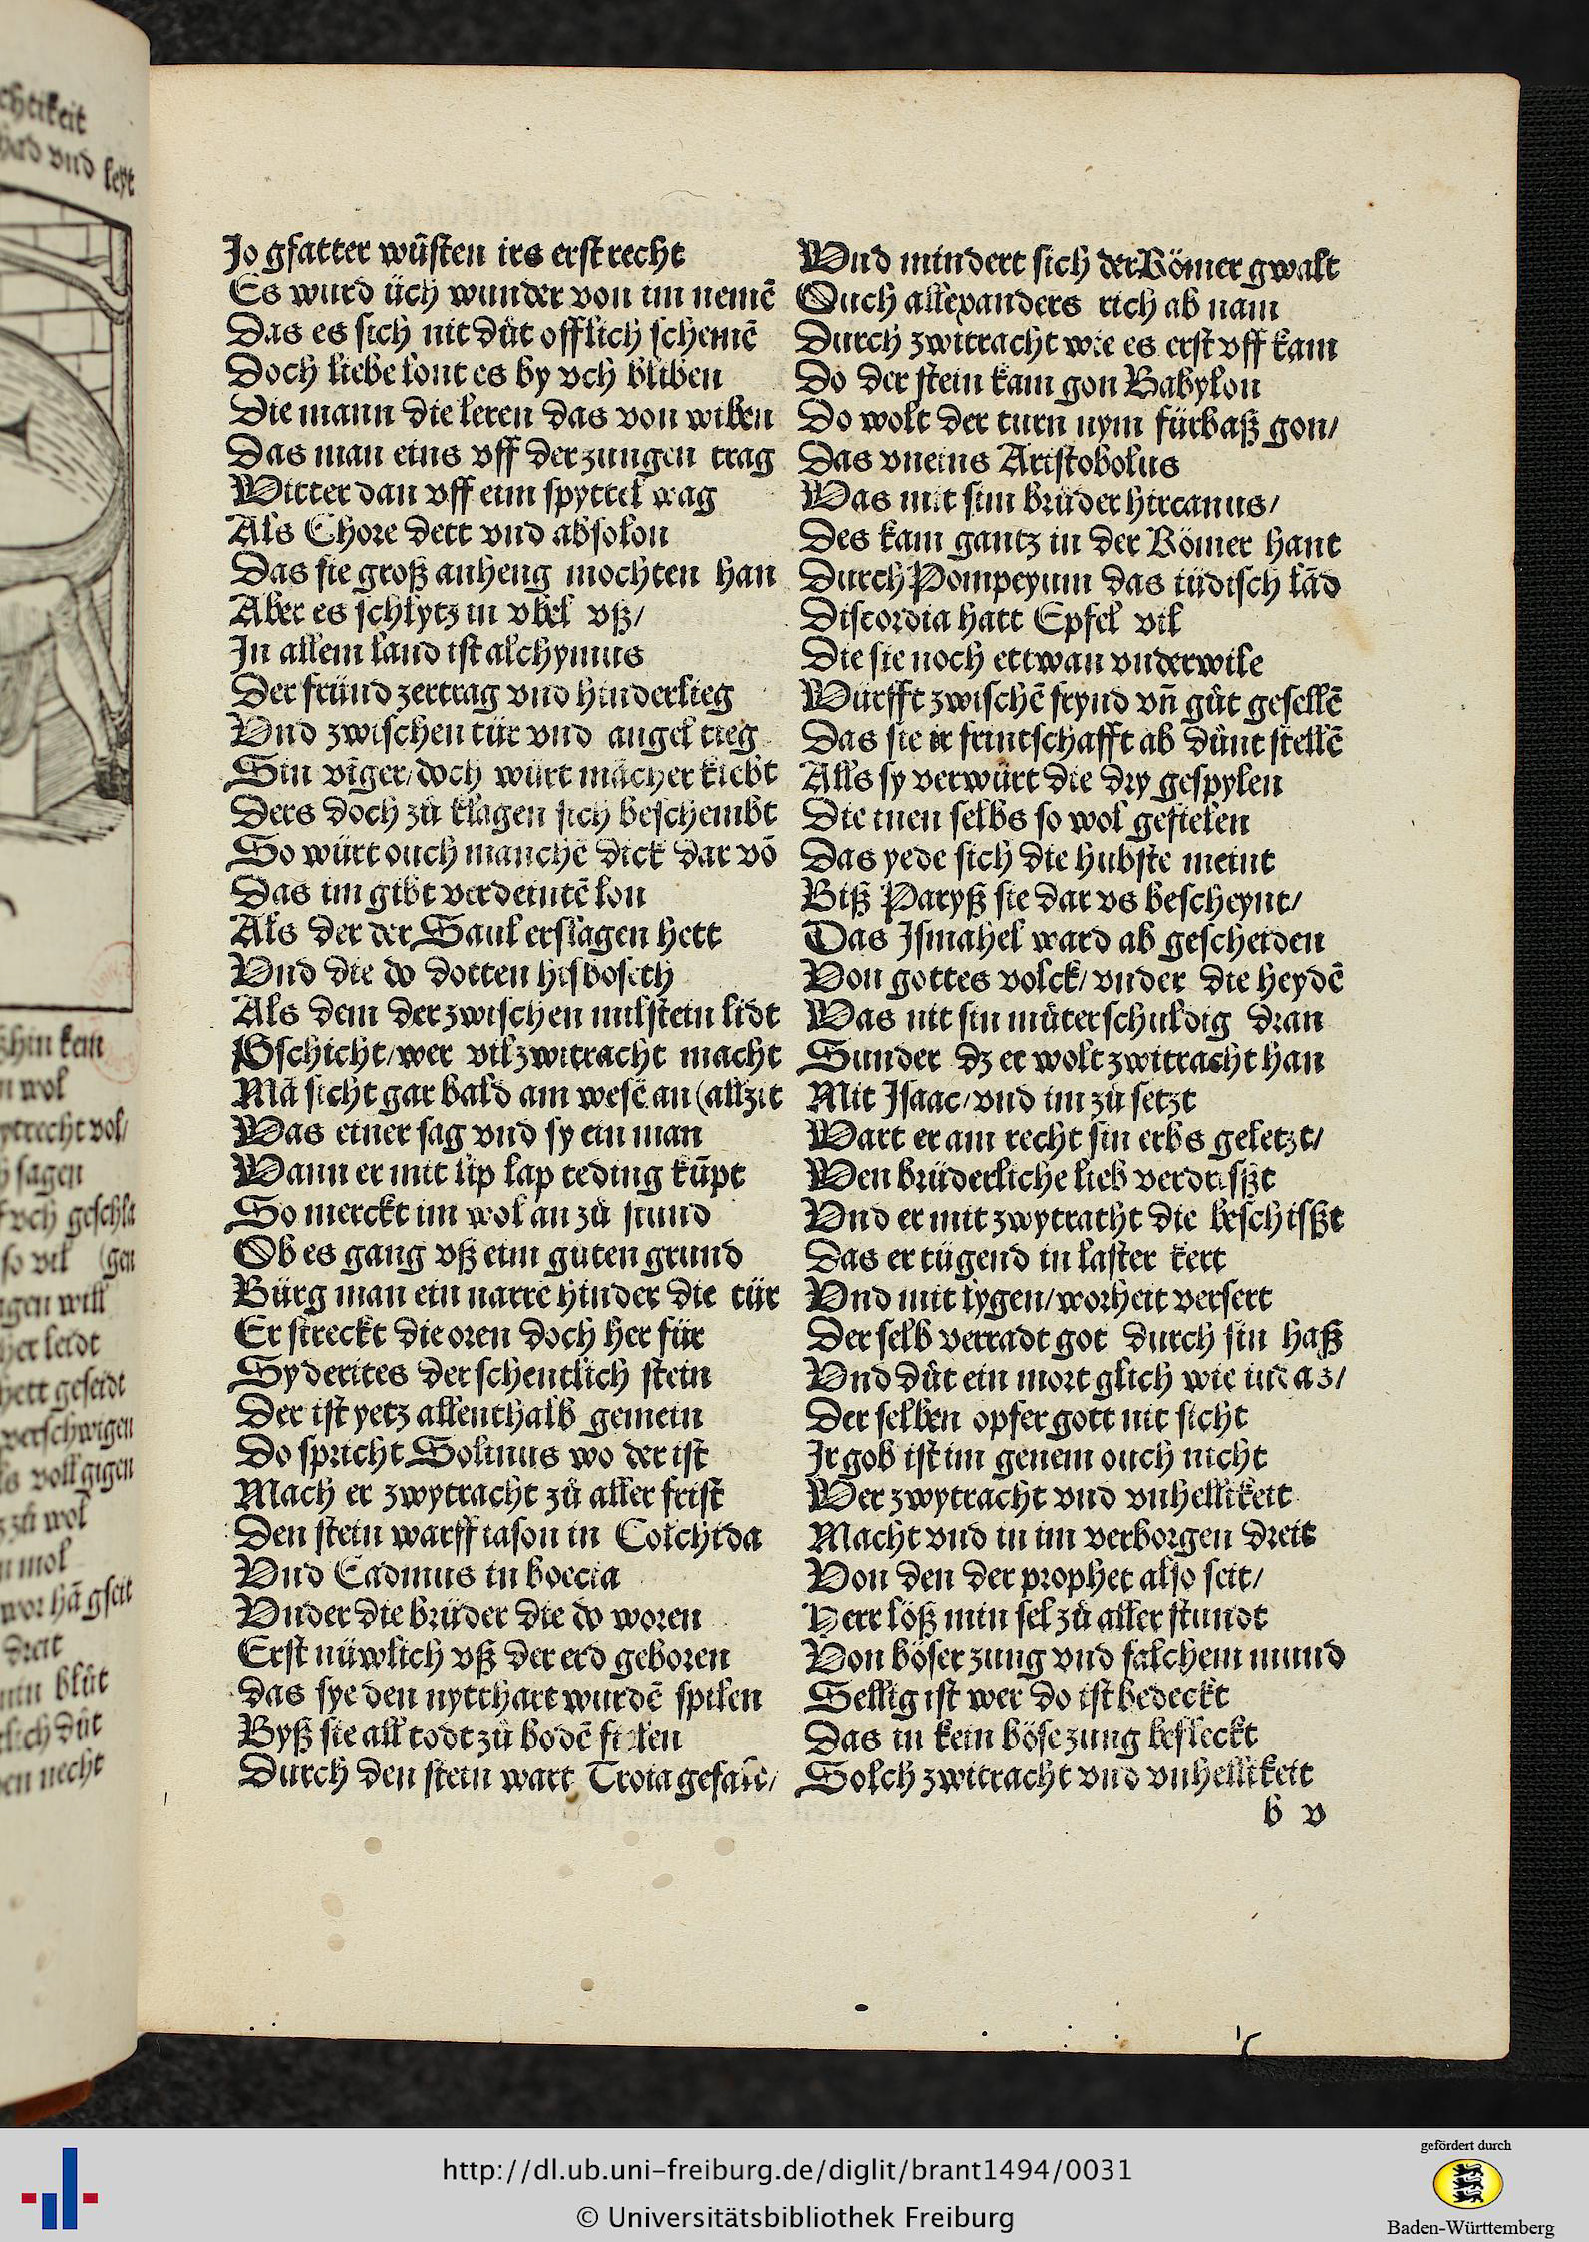 Jo gfatter wůsten irs erst recht
Es wurd üch wunder von im nemē
Das es sich nit důt offlich schemē
Doch liebe lont es by vch bliben
Die mann die leren das von wiben
Das man eins vff der zungen trag
Witter dan vff eim spyttel wag
Als Chore dett vnd absolon
Das sie groß anheng mochten han
Aber es schlytz in vbel vß/
In allem land ist alchymus
Der fründ zertrag vnd hinderlieg
Vnd zwischen tür vnd angel tieg
Sin viger/doch würt mācher klebt
Ders doch zů klagen sich beschembt
So würt ouch manchē dick dar vō
Das im gibt verdeintē lon
Als der der Saul erslagen hett
Vnd die do dotten hisboseth
Als dem der zwischen mulstein lidt
Gschicht/wer vil zwitracht macht
Mā sicht gar bald am wesē an (allzit
Was einer sag vnd sy ein man
Wann er mit lip lap teding kūpt
So merckt im wol an zů stund
Ob es gang vß eim guten grund
Bürg man ein narrē hinder die tür
Er streckt die oren doch her für
Syderites der schentlich stein
Der ist yetz allenthalb gemein
Do spricht Solinus wo der ist
Mach er zwytracht zů aller frist
Den stein warff iason in Colchida
Vnd Cadmus in boecia
Vnder die brüder die do woren
Erst nüwlich vß der erd geboren
das sye den nytthart wurdē spilen
Byß sie all todt zů bodē fielen
Durch den stein wart Troia gefalē/
Vnd mindert sich der Römer gwalt
Ouch allexanders rich ab nam
Durch zwitracht wie es erst vff kam
Do der stein kam gon Babylon
Do wolt der turn nym fürbaß gon/
Das vneins Aristobolus
Was mit sim brüder hircanus/
Des kam gantz in der Römer hant
Durch Pompeyum das iüdisch lād
Discordia hatt Epfel vil
Die sie noch ettwan vnderwile
Würfft zwischē frynd vn̄ gůt gesellē
Das sie ir frintschafft ab důnt stellē
Alls sy verwürt die dry gespylen
Die inen selbs so wol gefielen
Das yede sich die hubste meint
Biß Paryß sie dar vs bescheynt/
Das Ismahel ward ab gescheiden
Von gottes volck/vnder die heydē
Was nit sin můter schuldig dran
Sunder dz er wolt zwitracht han
Mit Isaac/vnd im zů setzt
Wart er am recht sin erbs geletzt/
Wen brüderliche lieb verdrisßt
Vnd er mit zwytratht die beschisßt
Das er tügend in laster kert
Vnd mit lygen/worheit versert
Der selb verradt got durch sin haß
Vnd důt ein mort glich wie iudas/
Der selben opfer gott nit sicht
Ir gob ist im genem ouch nicht
Wer zwytracht vnd vnhellikeit
Macht vnd in im verborgen dreit
Von den der prophet also seit/
Herr löß min sel zů aller stundt
Von böser zung vnd falchem mund
Sellig ist wer do ist bedeckt
Das in kein böse zung befleckt
Solch zwitracht vnd vnhellikeit
b v
http://dl.ub.uni-freiburg.de/diglit/brant1494/0031
© Universitätsbibliothek Freiburg
gefördert durch
Baden-Württemberg